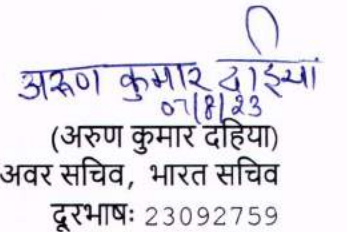 अरूण कुमार दाहिया
07/8/23
(अरुण कुमार दहिया)
अवर सचिव, भारत सचिव
दूरभाषः 23092759